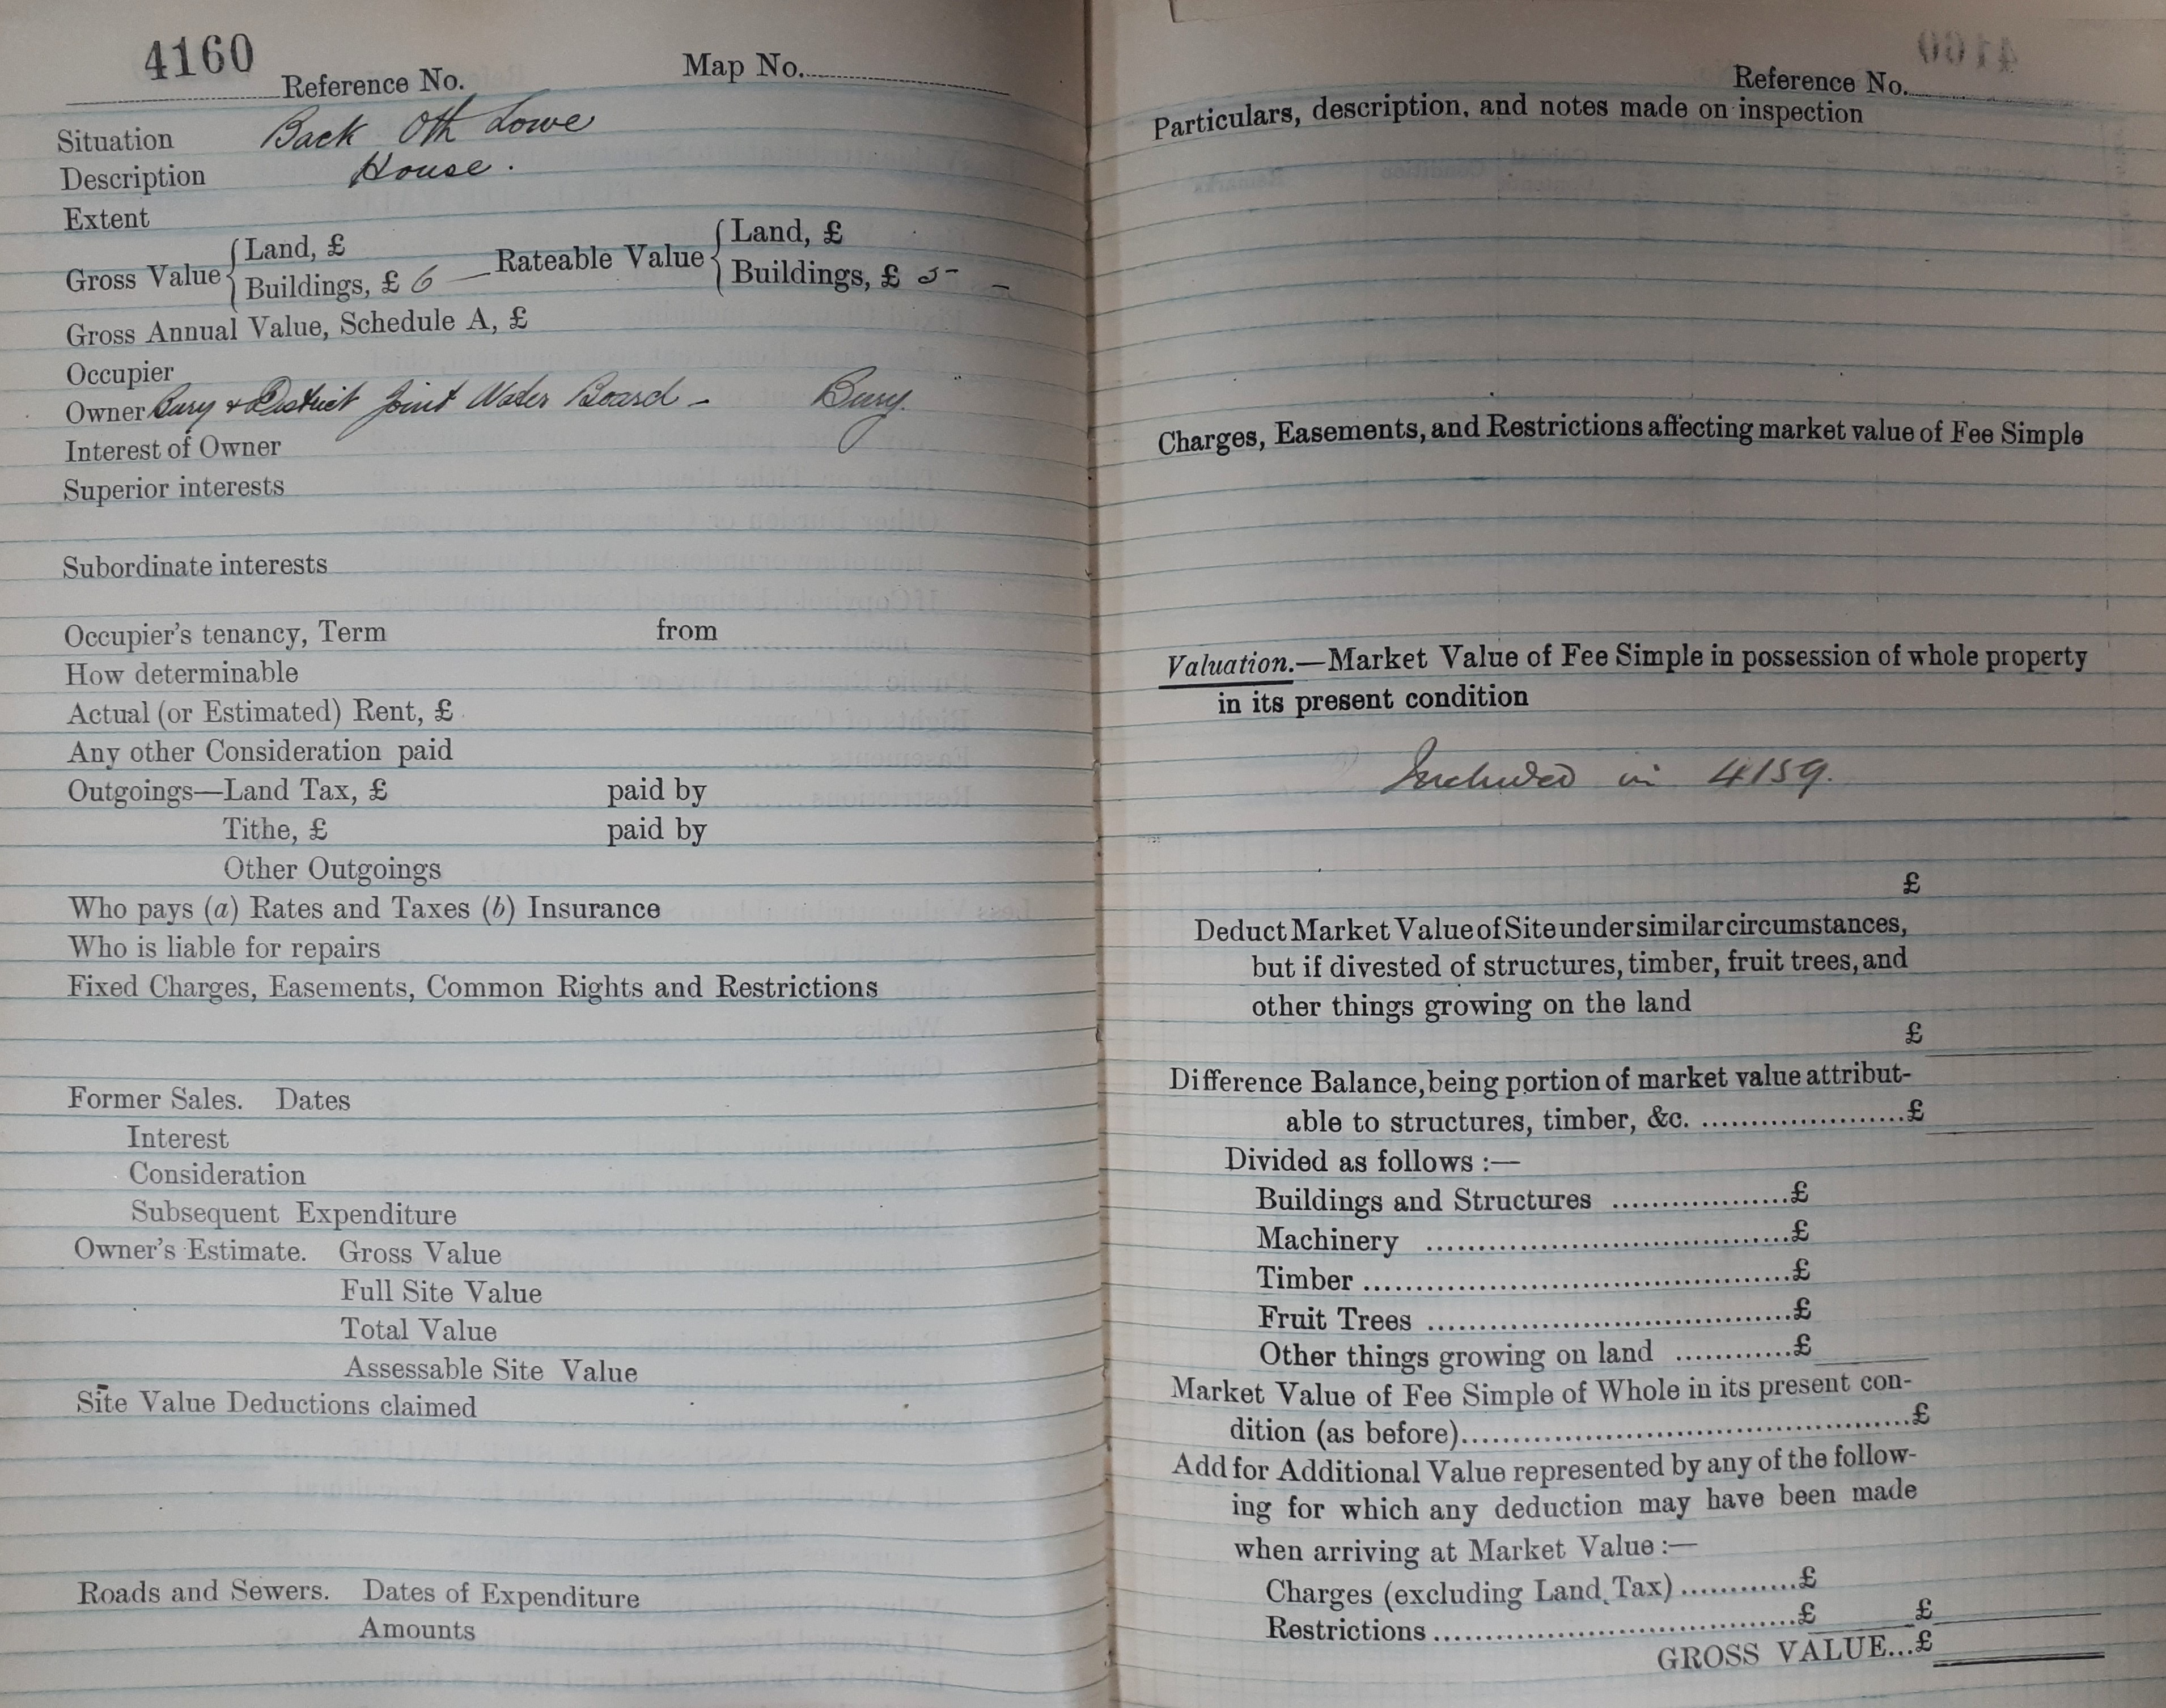 4160
Reference No. Map No.
Situation Back Oth Lowe
Description House.
Extent
Gross Value { Land, £ Rateable Value { Land, £
Buildings, £ 6 — Buildings, £ 5 –
Gross Annual Value, Schedule A, £
Occupier
Owner Bury & District Joint Water Board – Bury.
Interest of Owner
Superior interests
Subordinate interests
Occupier's tenancy, Term from
How determinable
Actual (or Estimated) Rent, £
Any other Consideration paid
Outgoings—Land Tax, £ paid by
Tithe, £ paid by
Other Outgoings
Who pays (a) Rates and Taxes (b) Insurance
Who is liable for repairs
Fixed Charges, Easements, Common Rights and Restrictions
Former Sales. Dates
Interest
Consideration
Subsequent Expenditure
Owner's Estimate. Gross Value
Full Site Value
Total Value
Assessable Site Value
Site Value Deductions claimed
Roads and Sewers. Dates of Expenditure
Amounts
Reference No.
Particulars, description, and notes made on inspection
Charges, Easements, and Restrictions affecting market value of Fee Simple
Valuation.—Market Value of Fee Simple in possession of whole property
in its present condition
Included in 4159.
£
Deduct Market Value of Site under similar circumstances,
but if divested of structures, timber, fruit trees, and
other things growing on the land
£
Difference Balance, being portion of market value attribut-
able to structures, timber, &c. ....................£
Divided as follows :—
Buildings and Structures ..................£
Machinery ....................................£
Timber ..........................................£
Fruit Trees ....................................£
Other things growing on land ............£
Market Value of Fee Simple of Whole in its present con-
dition (as before)............................................£
Add for Additional Value represented by any of the follow-
ing for which any deduction may have been made
when arriving at Market Value :—
Charges (excluding Land Tax) ............£
Restrictions ....................................£ £
GROSS VALUE...£